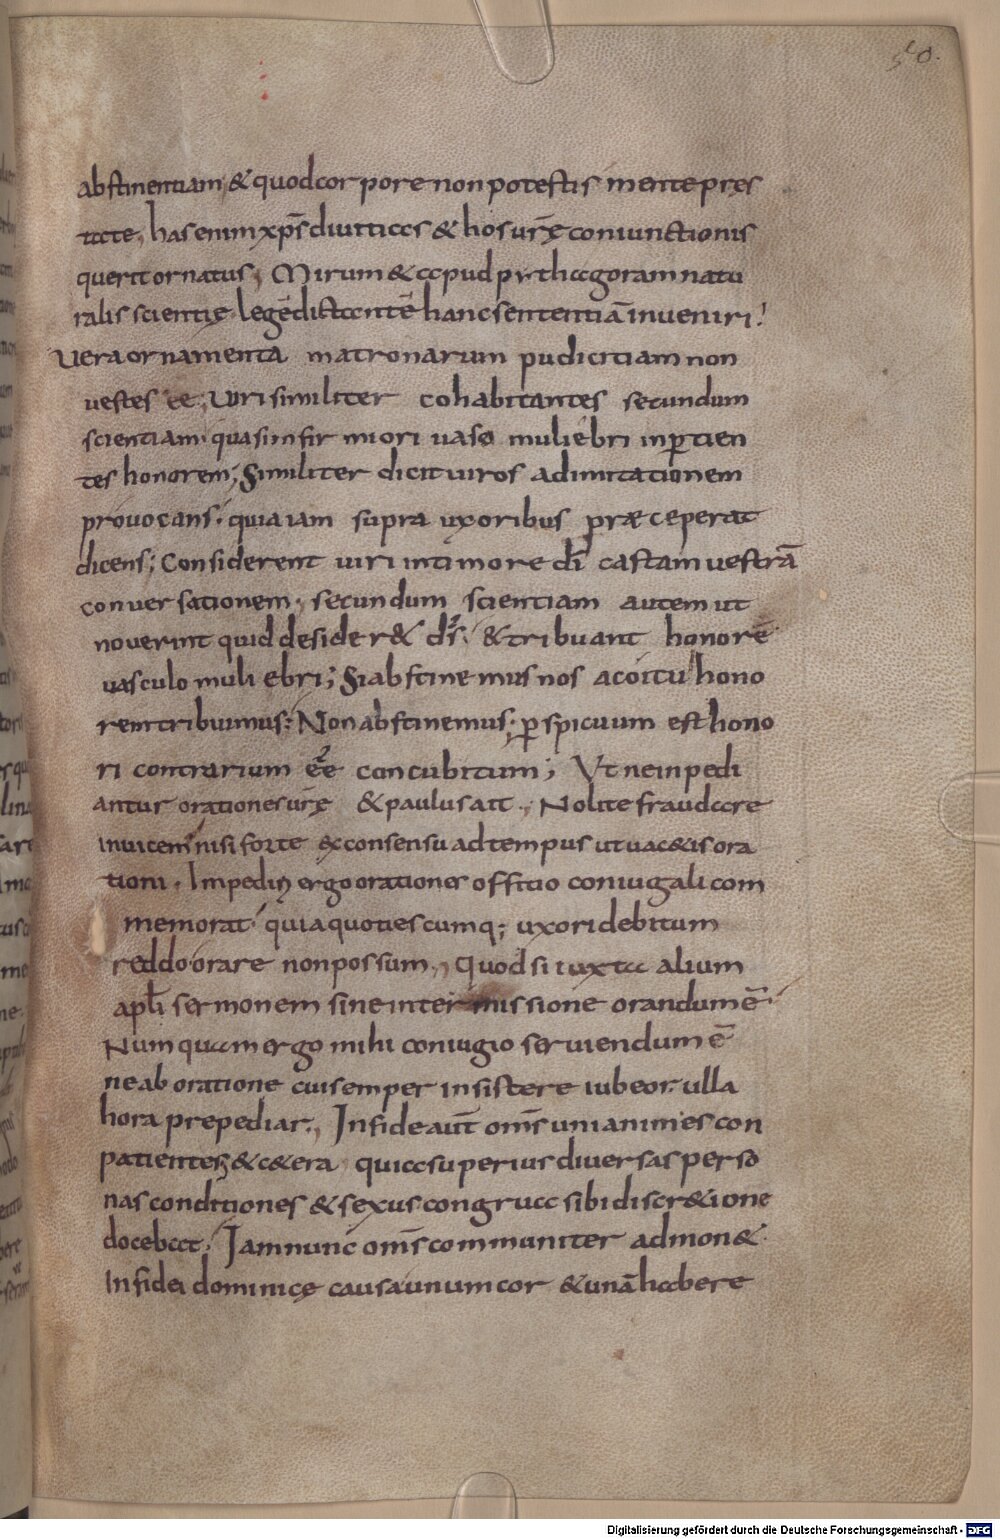 50.
abstinentiam, & quod corpore non potestis mente pręs
tate, has enim xp̄s diuitias & hos urę̄ coniunctionis
querit ornatus; Mirum & apud pythagoram natu
ralis scientię legē dictantē hanc sententiā inueniri!
Vera ornamenta matronarum pudicitiam non
uestes eē; Viri similiter cohabitantes secundum
scientiam quasi infirmiori uaso muliebri inꝑtien
tes honorem; Similiter dicit uiros ad imitationem
prouocans. quia iam supra uxoribus præceperat
dicens; Considerent uiri in timore dī castam uestrā
conuersationem. secundum scientiam autem ut
nouerint quid desider& d̄s. & tribuant honorē
uasculo muliebri; Si abstinemus nos a coitu hono
rem tribuimus. Non abstinemus. ꝑspicuum est hono
ri contrarium eē̄ concubitum; Vt ne inpedi
antur orationes urę̄ & paulus ait. Nolite fraudare
inuicem nisi forte ex consensu ad tempus ut uac&is ora
tioni. Impediri ergo orationes offitio coniugali com
memorat quia quotiescumq; uxori debitum
reddo orare non possum, Quod si iuxta alium
apl̄i sermonem sine intermissione orandum ē
Numquam ergo mihi coniugio seruiendum ē
ne ab oratione cui semper insistere iubeor. ulla
hora prepediar. In fide aūt om̄s unianimes con
patientes, & c&era quia superius diuersas perso
nas conditiones & sexus congrua sibi discr&ione
docebat. Iam nunc om̄s communiter admon&
In fidei dominicę causa unum cor & unā habere
Digitalisierung gefördert durch die Deutsche Forschungsgemeinschaft - DFG